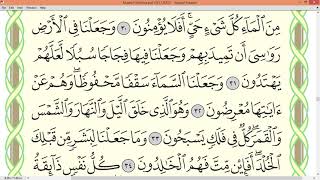 مِنَ ٱلۡمَآءِ كُلَّ شَيۡءٍ حَيٍّۚ أَفَلَا يُؤۡمِنُونَ ٣٠ وَجَعَلۡنَا فِي ٱلۡأَرۡضِ
رَوَٰسِيَ أَن تَمِيدَ بِهِمۡ وَجَعَلۡنَا فِيهَا فِجَاجٗا سُبُلٗا لَّعَلَّهُمۡ
يَهۡتَدُونَ ٣١ وَجَعَلۡنَا ٱلسَّمَآءَ سَقۡفٗا مَّحۡفُوظٗاۖ وَهُمۡ عَنۡ
ءَايَٰتِهَا مُعۡرِضُونَ ٣٢ وَهُوَ ٱلَّذِي خَلَقَ ٱلَّيۡلَ وَٱلنَّهَارَ وَٱلشَّمۡسَ
وَٱلۡقَمَرَۖ كُلّٞ فِي فَلَكٖ يَسۡبَحُونَ ٣٣ وَمَا جَعَلۡنَا لِبَشَرٖ مِّن قَبۡلِكَ
ٱلۡخُلۡدَۖ أَفَإِيْن مِّتَّ فَهُمُ ٱلۡخَٰلِدُونَ ٣٤ كُلُّ نَفۡسٖ ذَآئِقَةُ